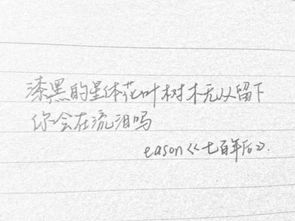 漆黑的星体花叶树木无从留下
你会在流泪吗
eason《七百年后》.